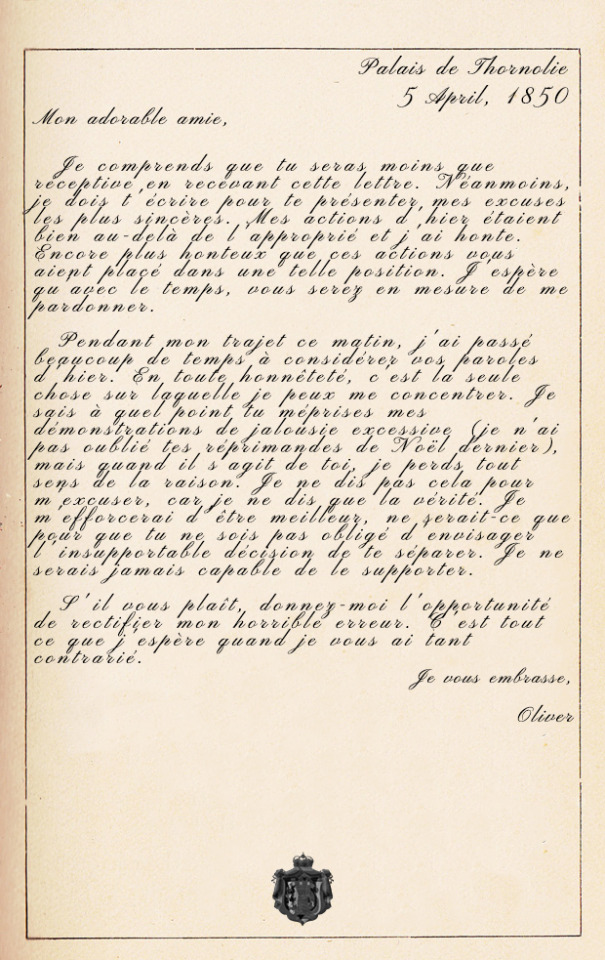 Palais de Thornolie
5 April, 1850
Mon adorable amie,
Je comprends que tu seras moins que
réceptive en recevant cette lettre. Néanmoins,
je dois t'écrire pour te présenter mes excuses
les plus sincères. Mes actions d'hier étaient
bien au-delà de l'approprié et j'ai honte.
Encore plus honteux que ces actions vous
aient placé dans une telle position. J'espère
qu'avec le temps, vous serez en mesure de me
pardonner.
Pendant mon trajet ce matin, j'ai passé
beaucoup de temps à considérez vos paroles
d'hier. En toute honnêteté, c'est la seule
chose sur laquelle je peux me concentrer. Je
sais à quel point tu méprises mes
démonstrations de jalousie excessive (je n'ai
pas oublié tes réprimandes de Noël dernier),
mais quand il s'agit de toi, je perds tout
sens de la raison. Je ne dis pas cela pour
m'excuser, car je ne dis que la vérité. Je
m'efforcerai d'être meilleur, ne serait-ce que
pour que tu ne sois pas obligé d'envisager
l'insupportable décision de te séparer. Je ne
serais jamais capable de le supporter.
S'il vous plaît, donnez-moi l'opportunité
de rectifier mon horrible erreur. C'est tout
ce que j'espère quand je vous ai tant
contrarié.
Je vous embrasse,
Oliver